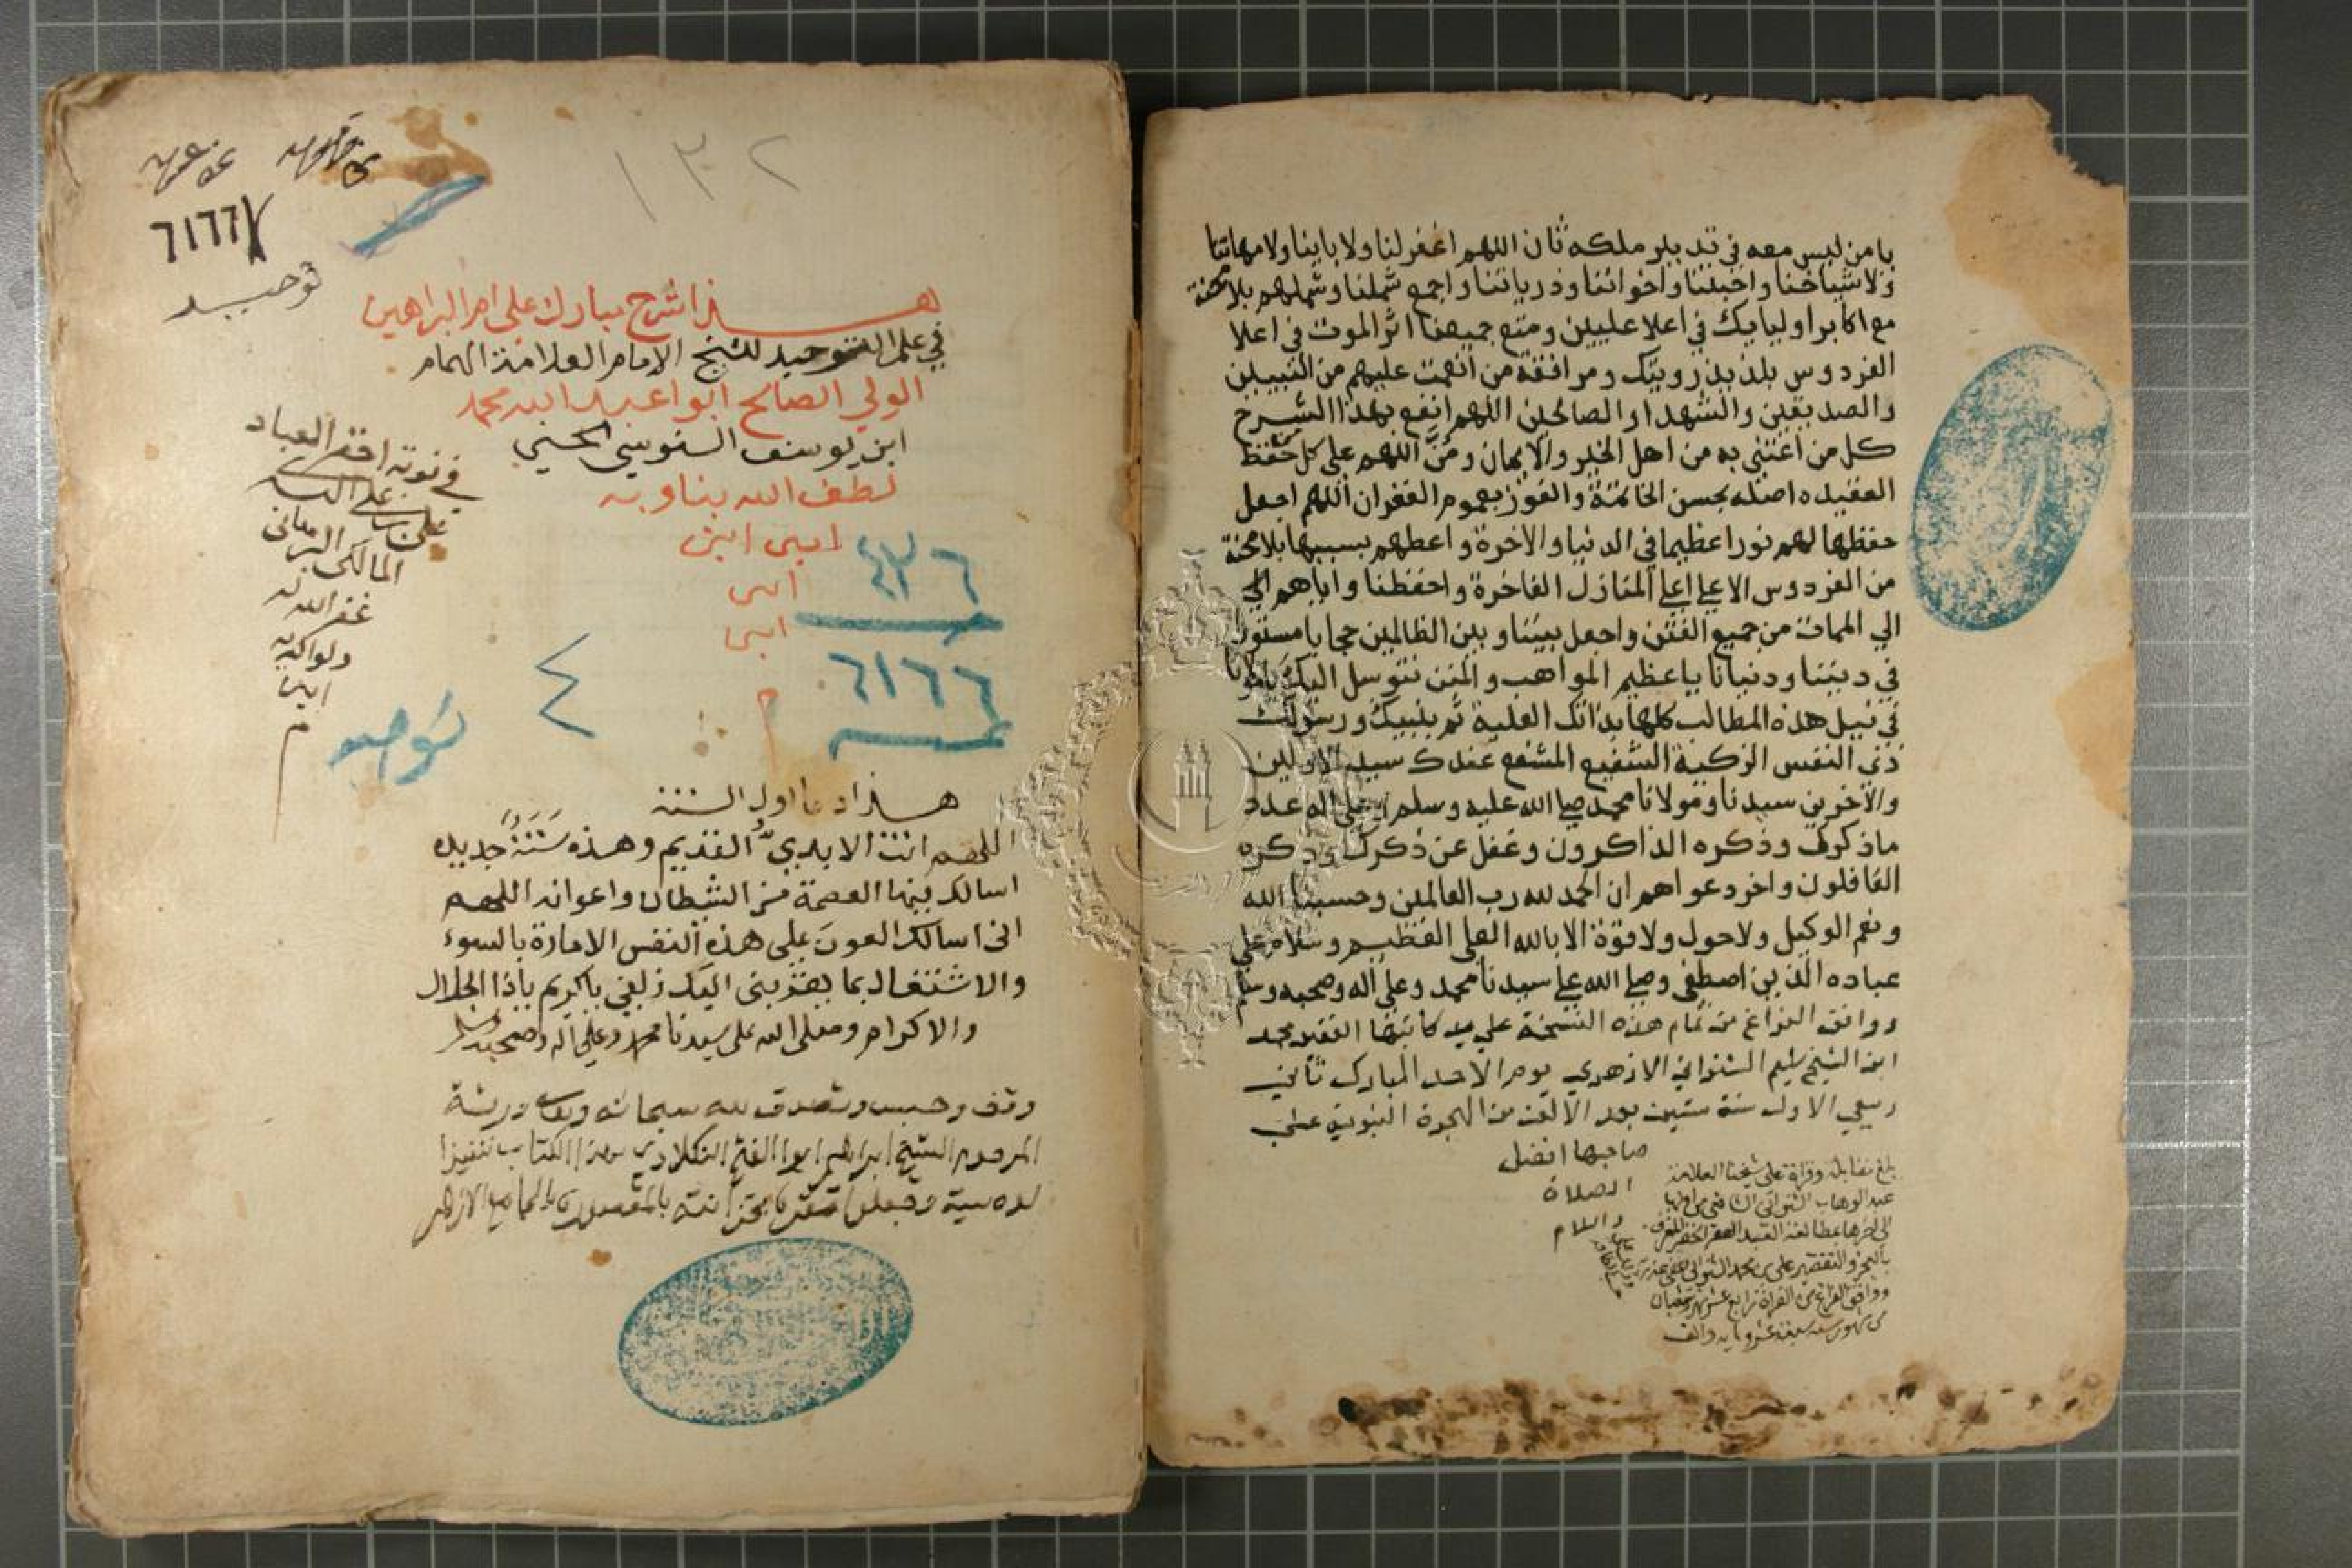 يا من ليس معه في تدبير ملكه ثان اللهم اغفر لنا ولابائنا ولامهاتنا
ولاشياخنا واحبتنا واخواننا وذرياتنا واجمع شملنا وشملهم بلا محنة
مع اكابر اوليايك في اعلا عليين ومتع جميعنا اثر الموت في اعلا
الفردوس بلذيذ رويتك ومرافقة من انعمت عليهم من النبيين
والصديقين والشهدا والصالحين اللهم انفع بهذا الشرح
كل من اعتنى به من اهل الخير والايمان ومُنَّ اللهم على كل من حفظ
العقيده اصله بحسن الخاتمة والفوز بعموم الغفران اللهم اجعل
حفظها لهم نورا عظيما في الدنيا والاخرة واعطهم بسببها بلا محنة
من الفردوس الاعلي اعلي المنازل الفاخرة واحفظنا واياهم الي
الي الممات من جميع الفتن واجعل بيننا وبين الظالمين حجابا مستورا
في ديننا ودنيانا يا عظيم المواهب والمنن نتوسل اليك يا مولانا
في نيل هذه المطالب كلها بذاتك العلية ثم بنبيك ورسولك
ذي النفس الزكية الشفيع المشفع عندك سيد الاولين
والآخرين سيدنا ومولانا محمد صلي الله عليه وسلم وعلي اله عدد
ما ذكرك وذكره الذاكرون وغفل عن ذكرك وذكره
الغافلون واخر دعواهم ان الحمد لله رب العالمين وحسبنا الله
ونعم الوكيل ولاحول ولاقوة الا بالله العلي العظيم وسلام علي
عباده الذين اصطفى وصلي الله علي سيدنا محمد وعلي اله وصحبه وسلم
ووافق الفراغ من تمام هذه النسخة علي يد كاتبها الفقير محمد
ابن الشيخ سليم الشنواني الازهري يوم الاحد المبارك ثاني
ربيعي الاول سنة ستين بعد الالف من الهجرة النبوية على
صاحبها افضل
الصلاة
والسلام
بلغ مقابلة وقراة على شيخنا العلامة
عبد الوهاب الشنواني الشافعي من اولها
الى اخرها مطالعة العبد الفقير الحقير المعترف
بالعجز والتقصير على بن محمد الشنواني
ووافق الفراغ من القراة رابع عشر شهر
من شهور سنه سبعة عشر وماية والف
١٣٢
٦١٦٦
توحيد
هذا شرح مبارك على ام البراهين
في علم التوحيد للشيخ الامام العلامة الهمام
الولي الصالح ابوا عبد الله محمد
ابن يوسف السنوسي الحسني
لطف الله بنا وبه
امين امين
امين
امين
م
في نوبة افقر العباد
المالكى
غفر الله له
ولوالديه
امين
م
٤٣٦
٦١٦٦
٤
توحيد
هذا دعا اول السنة
اللهم انت الابدي القديم وهذه سَنَةٌ جديده
اسالك فيها العصمة من الشيطان واعوانه اللهم
انى اسالك العونَ على هذه النفس الامارة بالسوء
والاشتغال بما يقربنى اليك زلفى يا كريم ياذا الجلال
والاكرام وصلى الله على سيدنا محمد وعلي اله وصحبه وسلم
وقف وحبس وتصدق لله سبحانه وتعالى ورثة
المرحوم الشيخ ابراهيم ابوا الفتح الدكلاوي هذا الكتاب تنفيذا